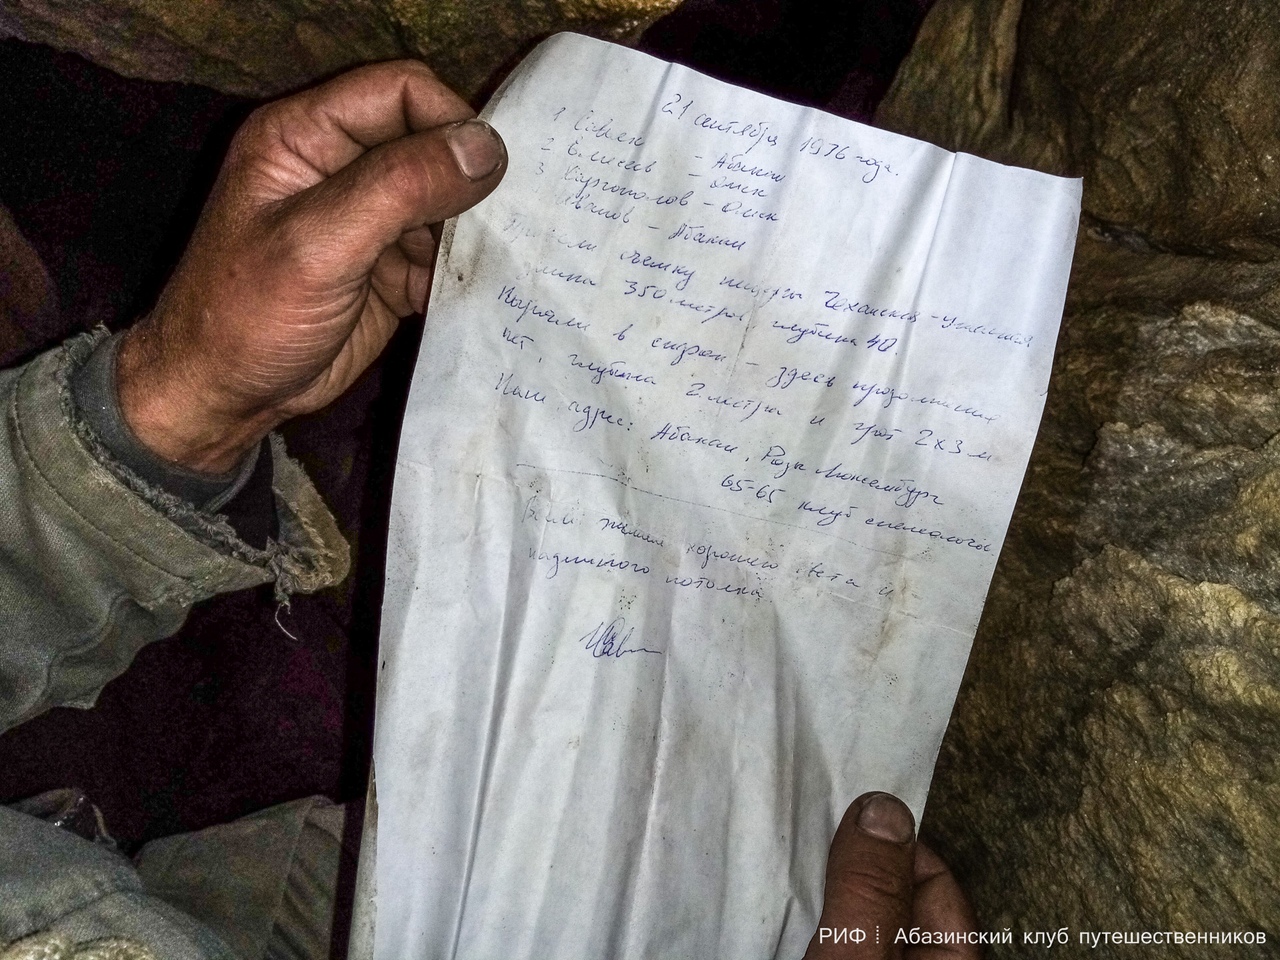 21 сентября 1976 года.
1 Савчен - Абакан
2 Елисеев - Омск
3 Каргополов - Омск
Иванов - Абакан
съемку пещеры Чеханская-
длина 350 метров глубина 40.
Ныряли в сифон - здесь продолжения
нет, глубина 2 метра и грот 2х3 м
Наш адрес: Абакан, Розы Люксембург
65-65 клуб спелеологов
Вам желаем хорошего света и
надежного потолка.
РИФ ⁞ Абазинский клуб путешественников